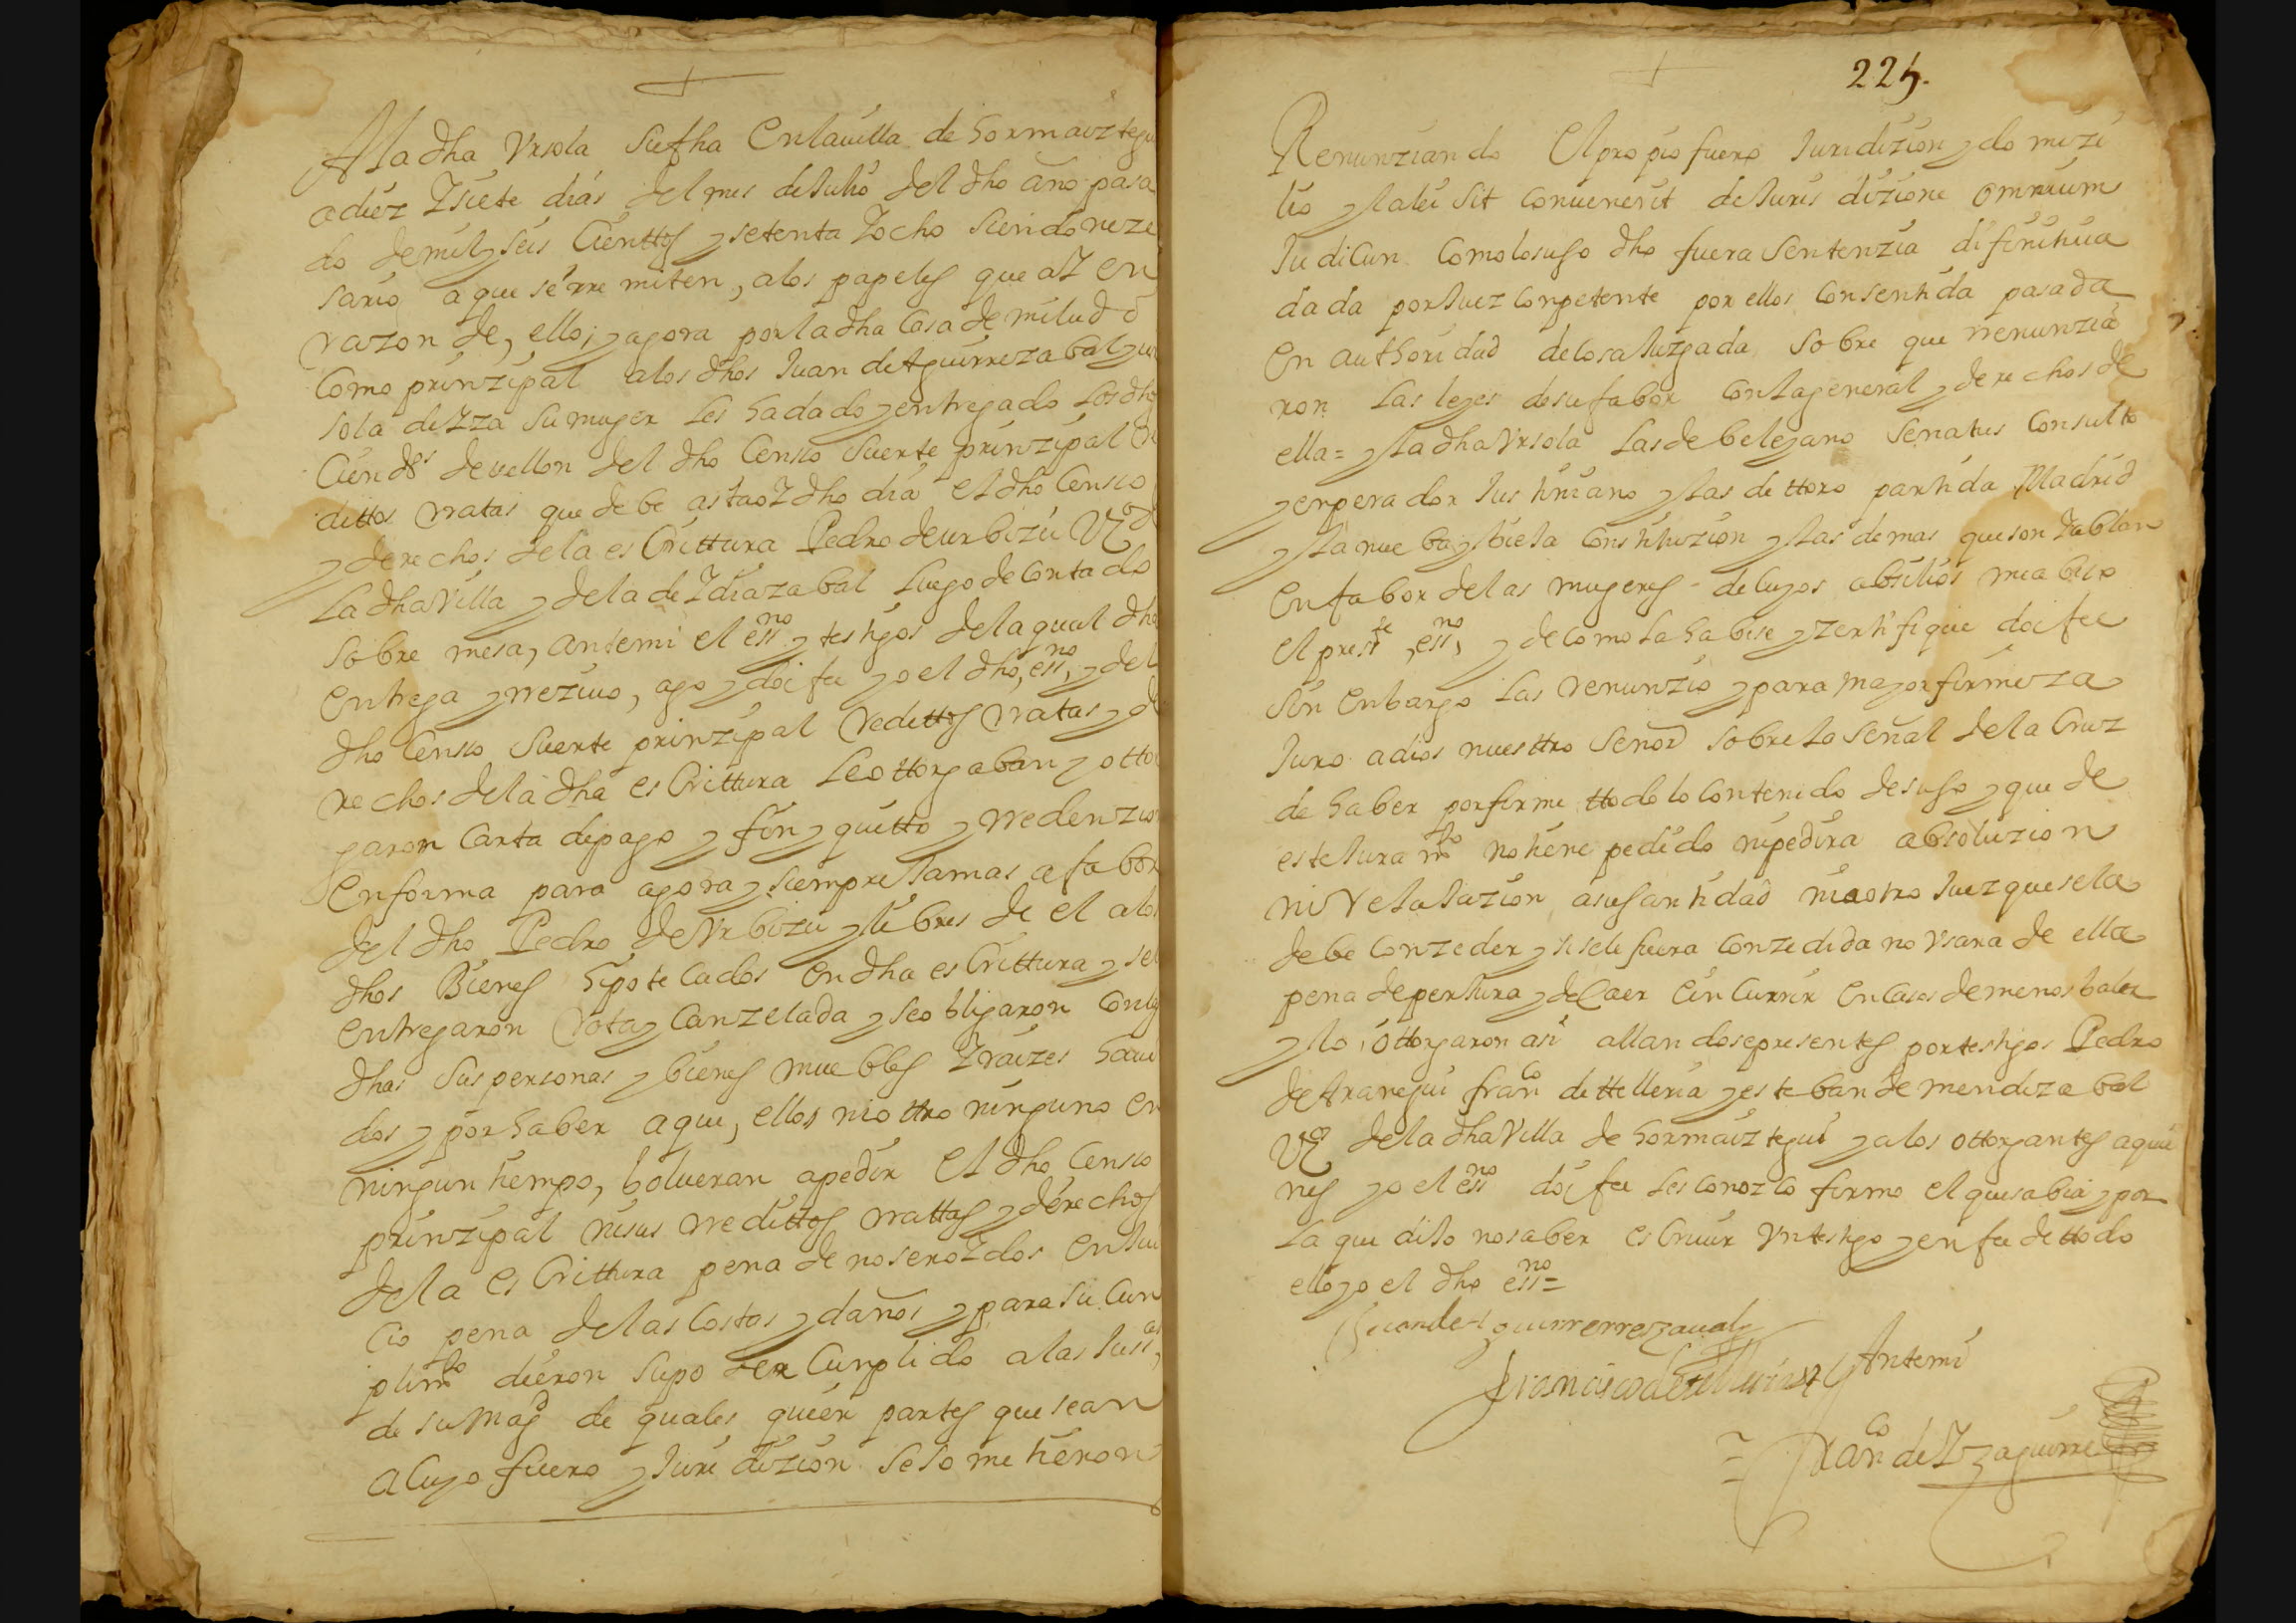 A la dha Vrsola su fha En la uilla de hormaiztegu
a diez Y siete dias del mes de Julio del dho año pasa
do de mil y seis Cienttos y setenta Y ocho siendo neze
sario a que se rremiten, a los papeles que aY en
razon de, ello; y agora por la dha Casa de
Como prinzipal a los dhos Juan de Aguirrezabal y ur
sola de Yza su muger les ha dado y entregado los dhos
Cien ds de vellon del dho Censso suerte prinzipal
dittos rratas que debe asta oY dho dia el dho Censso
y derechos de la esCrittura Pedro de urbizu Vzo de
La dha Villa y de la de Ydiazabal luego de Contado
sobre mesa, ante mi el essno y testigos de la qual dha
Entrega y rrezivo, ago y doi fee yo el dho, essno, y del
dho Censso suerte prinzipal redittos rratas y de
rechos de la dha esCrittura le ottorgaban y otto
garon Carta de pago y fin y quitto y rredenzion
En forma para agora y siempre Jamas a fabor
del dho Pedro de Vrbizu y libres de el a los
dhos Bienes hipoteCados En dha esCrittura y se
entregaron rota y Canzelada y se obligaron Con
dhas sus personas y bienes muebles Y raizes haui
dos y por haber a que, ellos ni ottro ninguno en
ningun tiempo, bolueran a pedir el dho Censso
prinzipal ni sus rredittos rrattas y derechos
de la esCrittura pena de no ser oYdos en Jui
Cio pena de las Costas y daños y para su Cun
plimto dieron su poder Cunplido a las Jussas,
de su Magd de quales quier partes que sean
a Cuyo fuero y Juridizion se sometieron
225.
Renunziando El propio fuero Juridizion y domizi
lio y la lei sit Conuenerit de Juris dizione omnium
JudiCun Como lo suso dho fuera sentenzia difinitiua
dada por Juez Conpetente por ellos Consentida pasada
en authoridad de Cosa Juzgada sobre que rrenunzia
ron las leyes de su fabor Con la general y derechos de
ella= y la dha Vrsola las de beleyano senatus Consulto
y enperador Justiniano y las de ttoro partida Madrid
y la nueba y bieja Constituzion y las demas que son Y ablan
En fabor de las mugeres de Cuyos absilios me abiso
El preste, essno, y de Como la habise y zertifique doi fee
sin enbargo las renunzio y para mayor firmeza
Juro a dios nuesttro señor sobre la señal de la Cruz
de haber por firme ttodo lo Contenido de suso y que de
este Juramto no tiene pedido ni pedira absoluzion
ni relaJazion a su santidad ni a otro Juez que se la
debe Conzeder y si se le fuera Conzedida no Vsara de ella
pena de perJura y de Caer E in Currir en Casos de menos baler
y lo, ottorgaron asi allandose presentes por testigos Pedro
de Aranegui franco de ttelleria y esteban de mendizabal
Vzos de la dha Villa de hormaiztegui y a los ottorgantes a quie
nes yo el essno doi fee les ConozCo firmo el que sabia y por
la que diJo no saber esCriuir Vn testigo y en fee de ttodo
ello yo el dho essno=
Juan de Aguirrerrezaual
Francisco de Telleria
Ante mi
= Franco de Yzaguirre